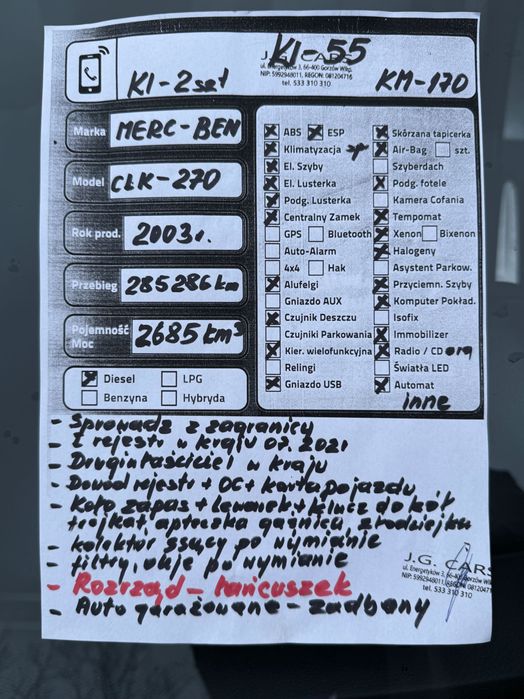 KI-55
J.G. CARS
ul. Energetyków 3, 66-400 Gorzów Wlkp.
NIP: 5992948011, REGON: 081204716
tel. 533 310 310
KI-2szt
KM-170
Marka MERC-BEN
Model CLK-270
Rok prod. 2003r.
Przebieg 285286km
Pojemność Moc 2685km³
Diesel LPG
Benzyna Hybryda
ABS ESP
Klimatyzacja
El. Szyby
El. Lusterka
Podg. Lusterka
Centralny Zamek
GPS Bluetooth
Auto-Alarm
4x4 Hak
Alufelgi
Gniazdo AUX
Czujnik Deszczu
Czujniki Parkowania
Kier. wielofunkcyjna
Relingi
Gniazdo USB
Skórzana tapicerka
Air-Bag szt.
Szyberdach
Podg. fotele
Kamera Cofania
Tempomat
Xenon Bixenon
Halogeny
Asystent Parkow.
Przyciemn. Szyby
Komputer Pokład.
Isofix
Immobilizer
Radio / CD org
Światła LED
Automat
inne
- Sprowadz z zagranicy
- I rejestr w kraju 07.2021
- Drugi właściciel w kraju
- Dowód rejestr + OC + karta pojazdu
- Koło zapas + lewarek + klucz do kół
trójkąt, apteczka gaśnica, złodziejka
- kolektor ssący po wymianie
- filtry, oleje po wymianie
- Rozrząd - łańcuszek
- Auto garażowane - zadbany
J.G. CARS
ul. Energetyków 3, 66-400 Gorzów Wlkp.
NIP: 5992948011, REGON: 081204716
tel. 533 310 310